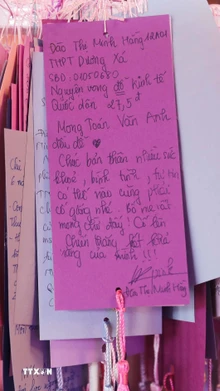 Đào Thị Minh Hằng 12A01
THPT Dương Xá
SBD: 01050680
Nguyện vọng đỗ Kinh tế
Quốc dân 27,5đ
Mong Toán Văn Anh
đều đỗ ♥
Chúc bản thân nhiều sức
khoẻ, bình tĩnh, tự tin
có thế nào cũng phải
cố gắng nhé. bố mẹ rất
mong chờ đấy! Cố lên
Minh
Đào Thị Minh Hằng
TTXVN